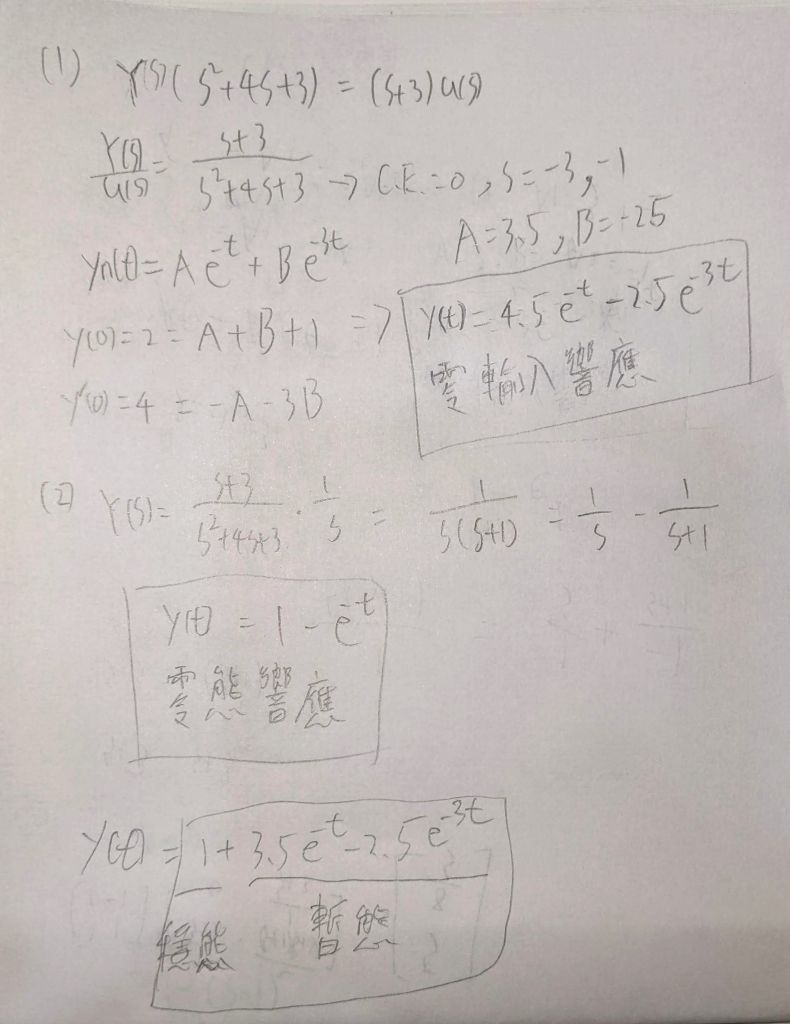 (1) Y(s)(s²+4s+3) = (s+3)U(s)
Y(s)/U(s) = (s+3)/(s²+4s+3) → C.E.=0, s=-3,-1
A=3.5, B=-2.5
yn(t)=Ae^-t + Be^-3t
y(0)=2=A+B+1 => y(t)=4.5e^-t -2.5e^-3t
y'(0)=4 = -A-3B
零輸入響應
(2) Y(s)= (s+3)/(s²+4s+3) · 1/s = 1/(s(s+1)) = 1/s - 1/(s+1)
y(t) = 1-e^-t
零態響應
y(t) = 1+3.5e^-t-2.5e^-3t
穩態 暫態